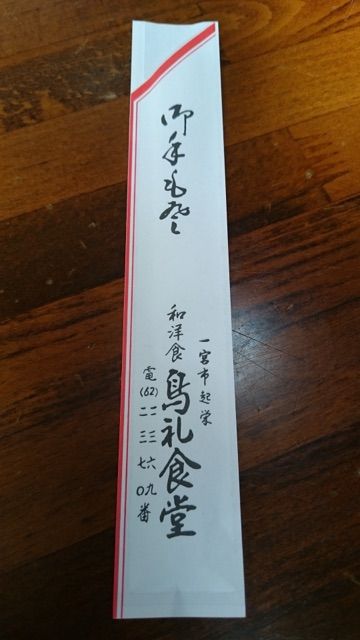 御手毛登
一宮市起栄
和洋食
鳥礼食堂
電(62)
二三六九
二三七〇番